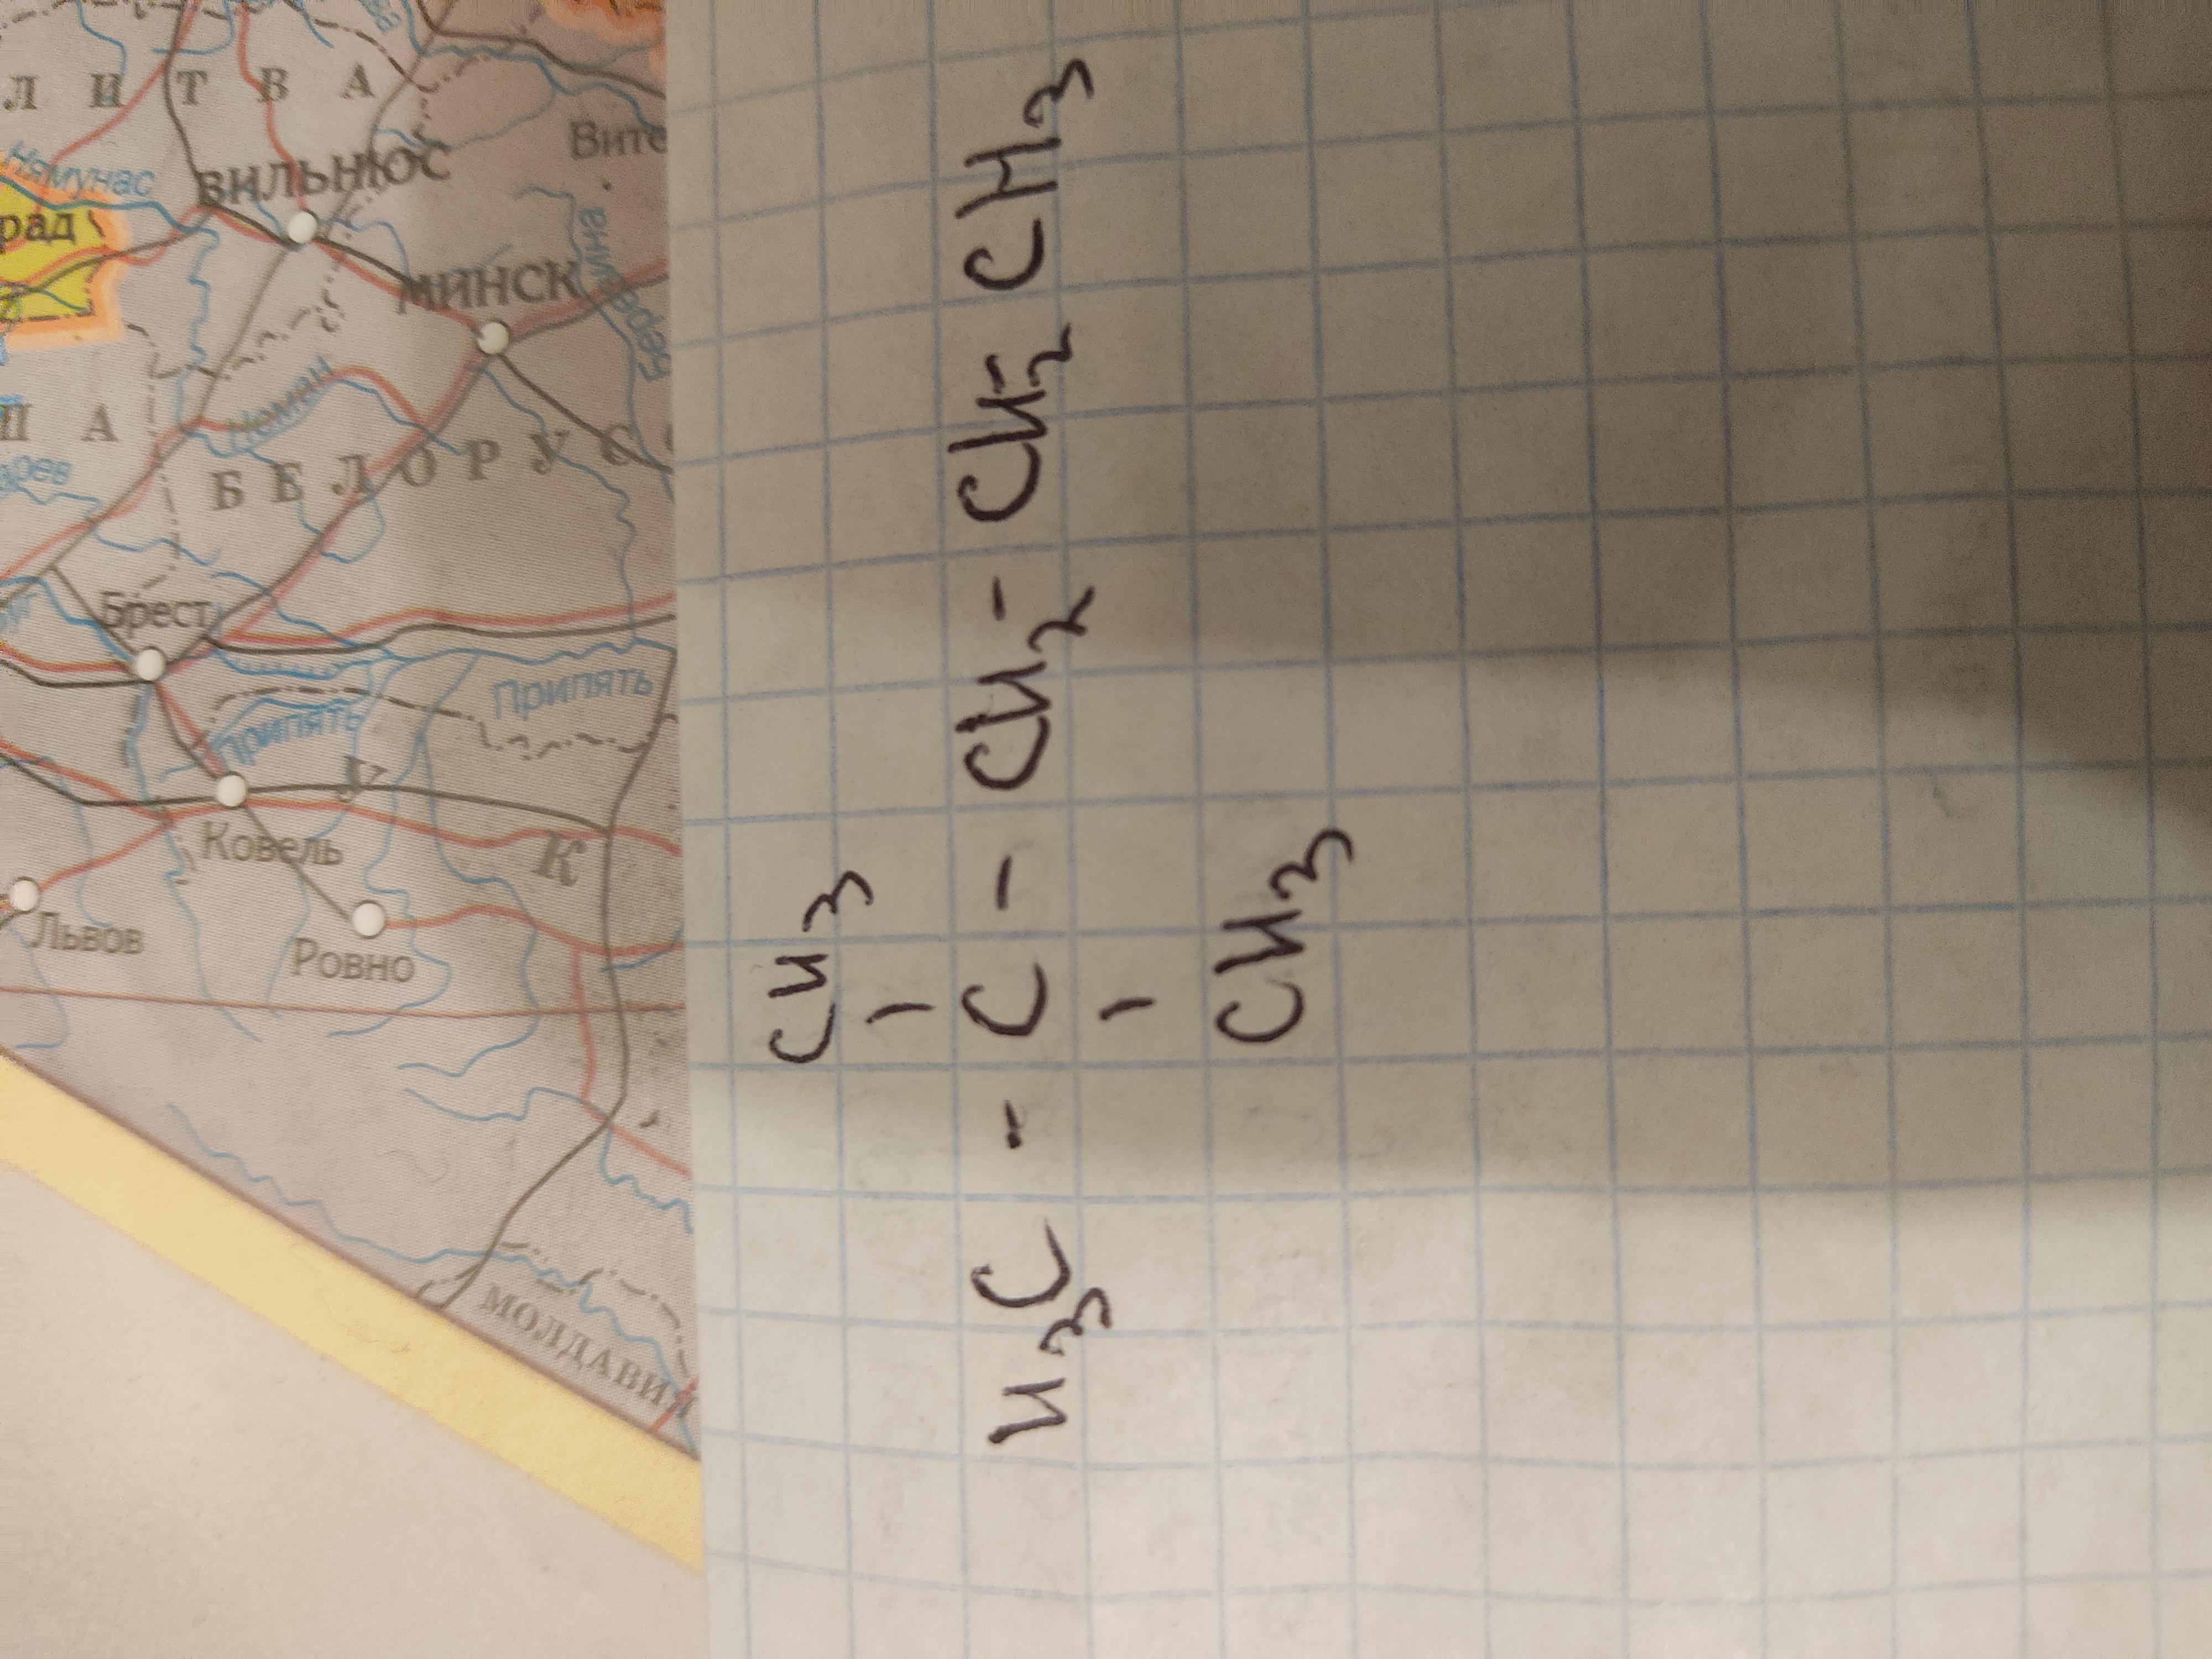 ЛИТВА
Нямунас
ВИЛЬНЮС
рад
МИНСК
Неман
БЕЛОРУС
Брест
Припять
Припять
У
К
Ковель
Львов
Ровно
МОЛДАВИ
CH3
H3C - C - CH2 - CH2 - CH3
CH3